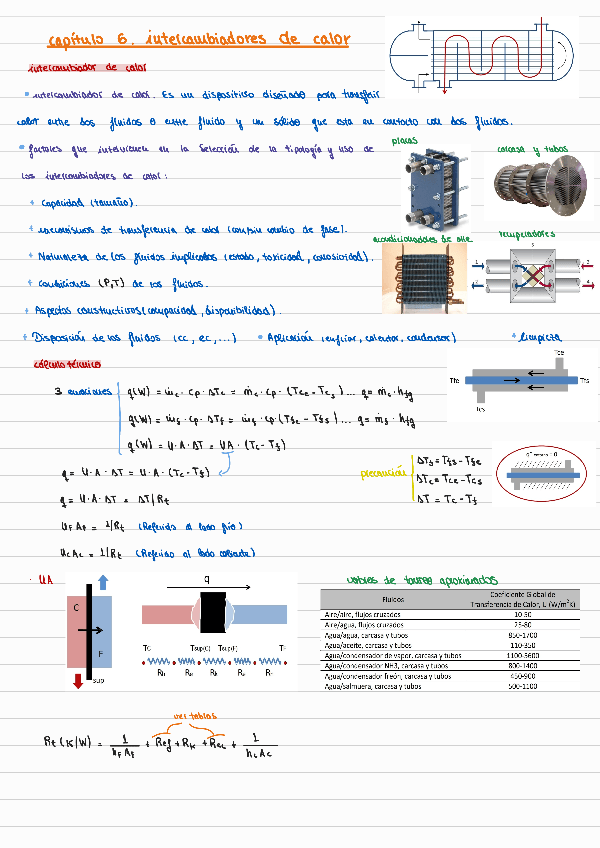 capítulo 6. intercambiadores de calor
intercambiador de calor
• intercambiador de calor. Es un dispositivo diseñado para transferir
calor entre dos fluidos o entre fluido y un sólido que esta en contacto con dos fluidos.
• factores que intervienen en la selección de la tipología y uso de
los intercambiadores de calor:
placas
carcasa y tubos
+ capacidad (tamaño).
+ mecanismos de transferencia de calor (con/sin cambio de fase).
acondicionadores de aire
+ Naturaleza de los fluidos implicados (estado, toxicidad, corrosividad).
+ condiciones (P,T) de los fluidos.
+ Aspectos constructivos (compacidad, disponibilidad).
+ Disposición de los fluidos (cc, ec, ...) • Aplicación (enfriar, calentar, condensar) * limpieza
cálculo térmico
Tce
Tfe
Tfs
Tcs
3 ecuaciones
q(W) = ṁc · cp · ΔTc = ṁc · cp · (Tce - Tcs) ... q = ṁc · hfg
q(W) = ṁf · cp · ΔTf = ṁf · cp · (Tfe - Tfs) ... q = ṁf · hfg
q(W) = U · A · ΔT = UA · (Tc - Tf)
q = U · A · ΔT = U · A · (Tc - Tf)
q = U · A · ΔT = ΔT/Rt
UF AF = 1/Rt (Referido al lado frío)
Uc Ac = 1/Rt (Referido al lado caliente)
precaución
ΔTf = Tfs - Tfe
ΔTc = Tce - Tcs
ΔT = Tc - Tf
· UA
C
F
sup
q
Tc Tsup(C) Tsup(F) TF
valores de tablas aproximados
Fluidos Coeficiente Global de Transferencia de Calor, U (W/m²K)
Aire/aire, flujos cruzados 10-50
Aire/agua, flujos cruzados 25-80
Agua/agua, carcasa y tubos 850-1700
Agua/aceite, carcasa y tubos 110-350
Agua/condensador de vapor, carcasa y tubos 1100-5600
Agua/condensador NH3, carcasa y tubos 800-1400
Agua/condensador freón, carcasa y tubos 450-900
Agua/salmuera, carcasa y tubos 500-1100
ver tablas
Rt (K/W) = 1/(hF AF) + Ref + Rk + Rec + 1/(hc Ac)